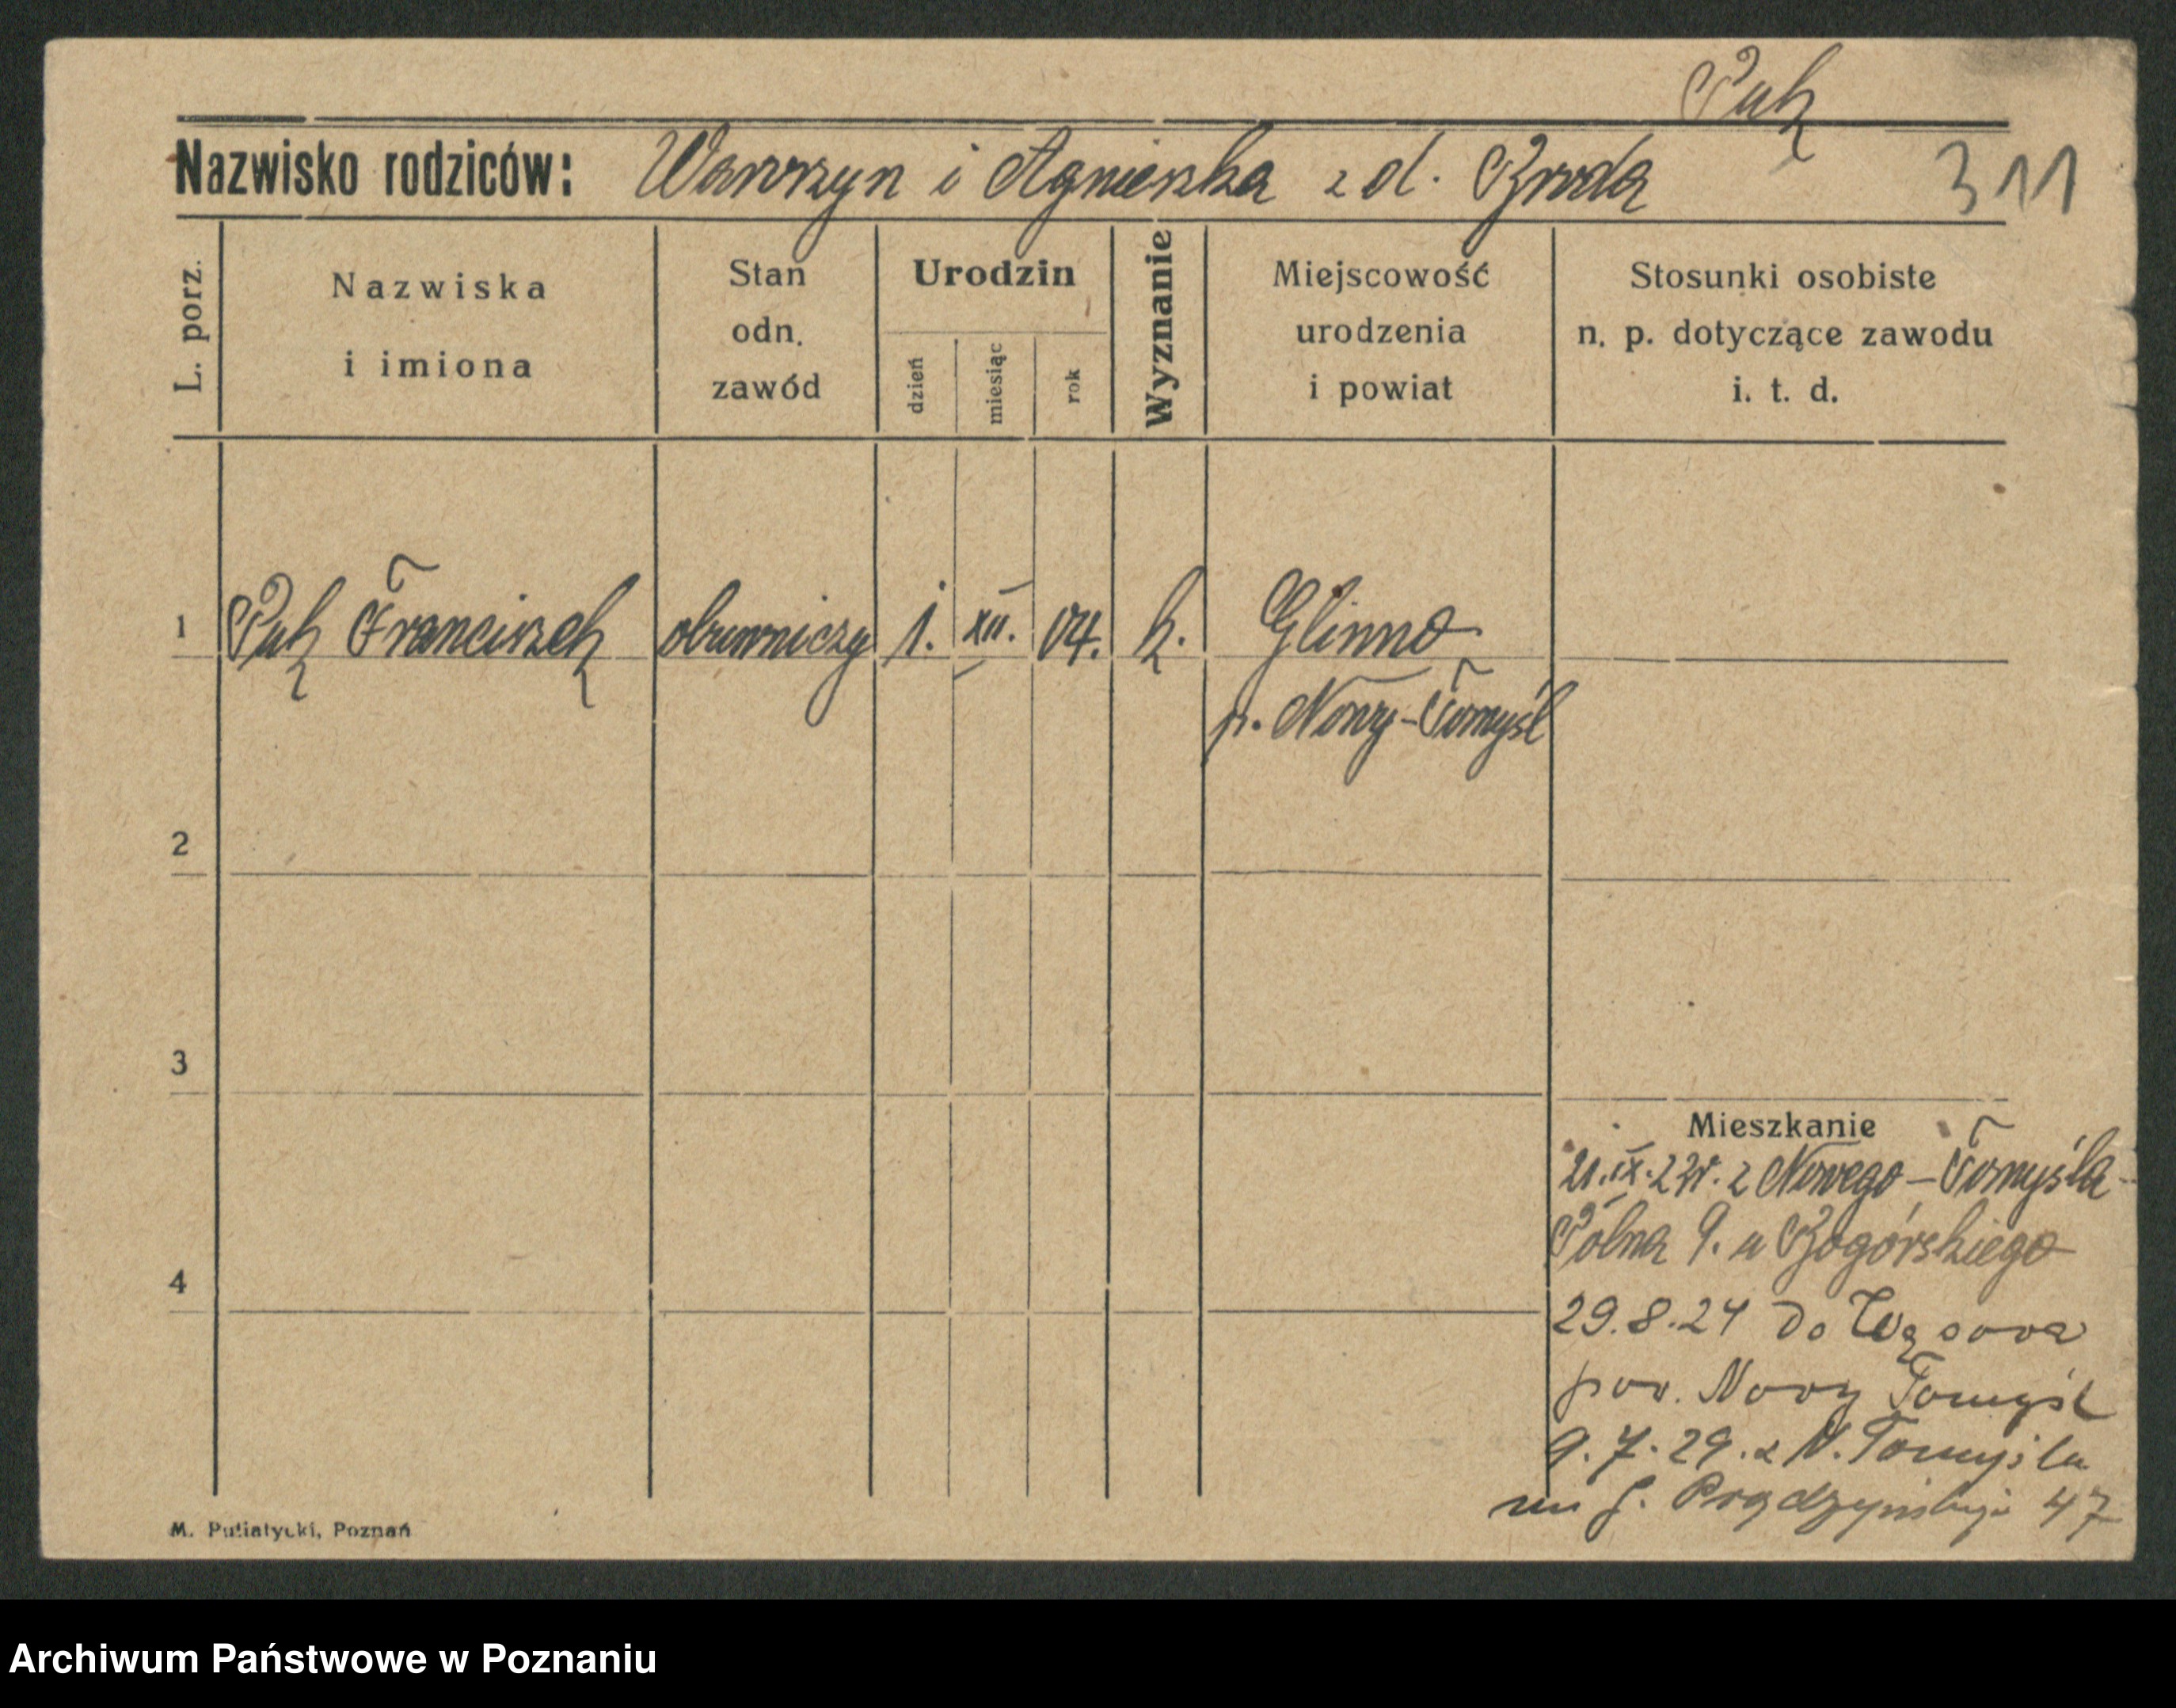 Puk
Nazwisko rodziców: Wawrzyn i Agnieszka z d. Broda 311
L. porz.
Nazwiska
i imiona
Stan
odn.
zawód
Urodzin
dzień
miesiąc
rok
Wyznanie
Miejscowość
urodzenia
i powiat
Stosunki osobiste
n. p. dotyczące zawodu
i. t. d.
1 Puk Franciszek obuwniczy 1. XII. 04. k. Glinno
p. Nowy-Tomyśl
2
3
Mieszkanie
21.IX.23r. z Nowego-Tomyśla
Polna 9. u Bogórskiego
4
29.8.24 do Wąsowa
pow. Nowy Tomyśl
9.7.29. z N. Tomyśla
47
M. Putiatycki, Poznań
Archiwum Państwowe w Poznaniu